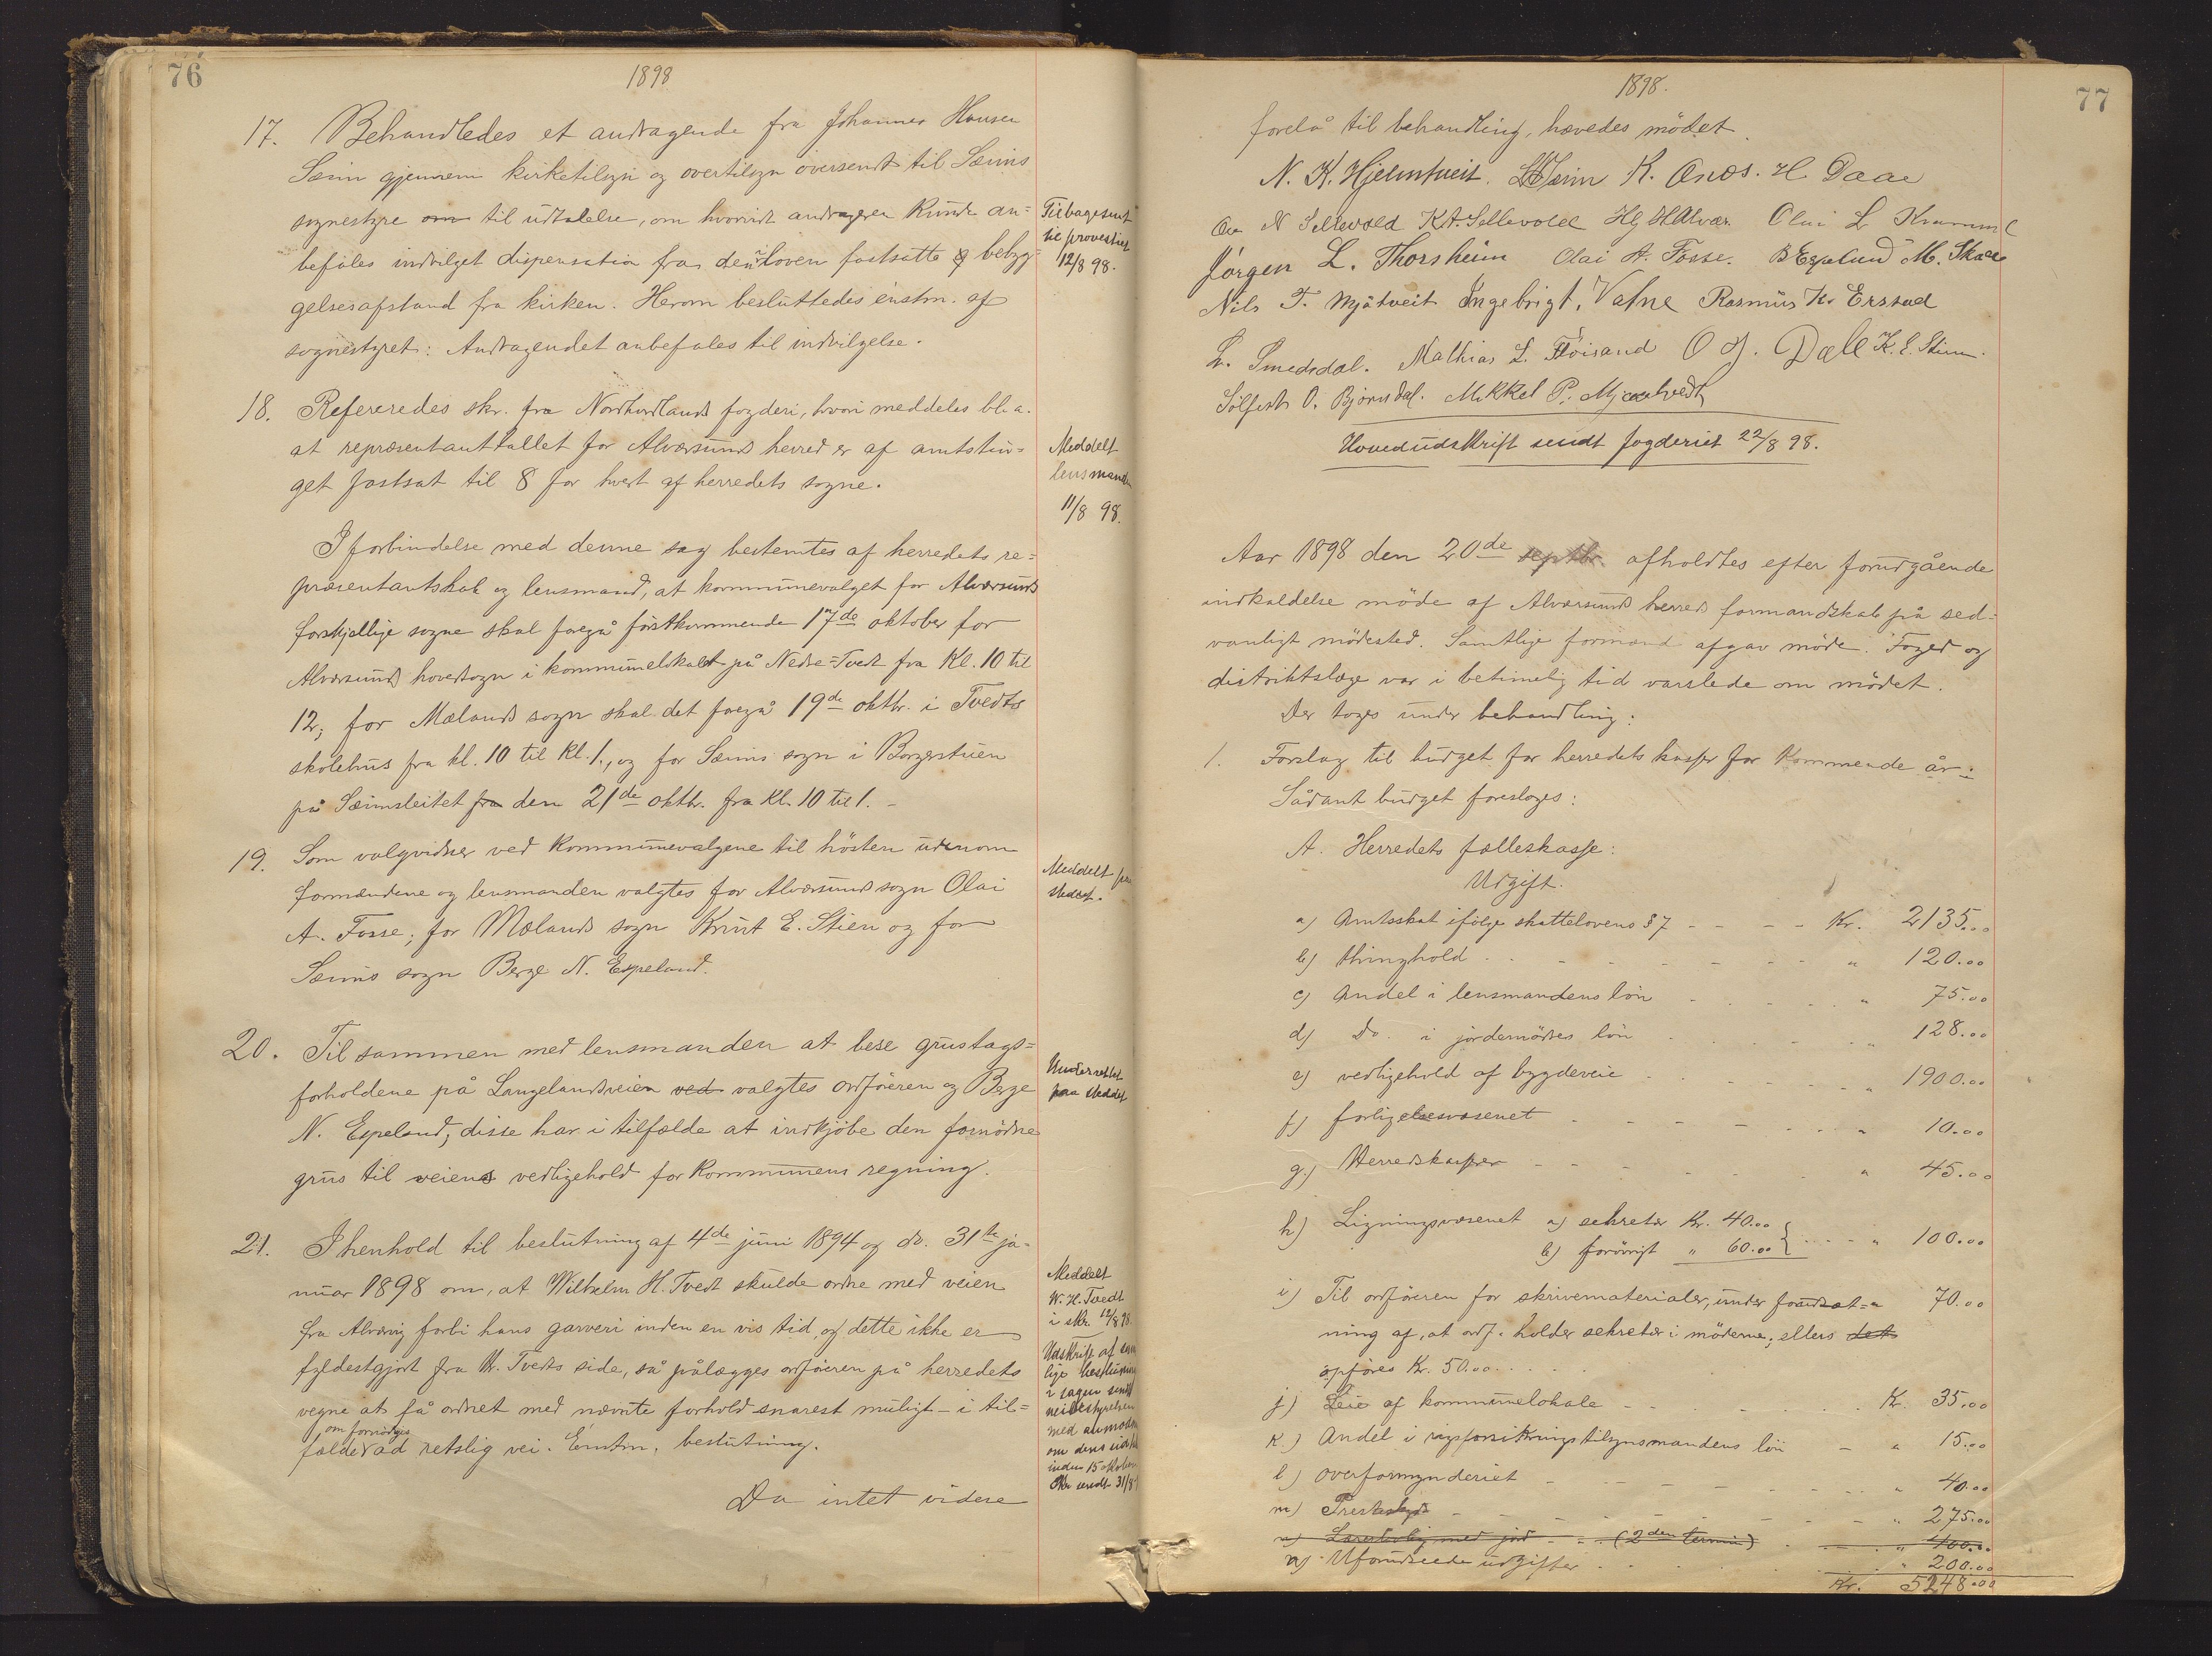 76
1898
17. Behandledes et andragende fra Johannes Hansen
Sæim gjennem kirketilsyn og overtilsyn oversendt til Sæims
sognestyre om til udtalelse, om hvorvidt andrageren kunde an=
befales indvilget dispensation fra den i loven fastsatte bebyg=
gelsesafstand fra kirken. Herom besluttedes enstm. af
sognestyret: Andragendet anbefales til indvilgelse.
Tilbagesent
til provestiet
12/8 98.
18. Refereredes skr. fra Nordhordlands fogderi, hvori meddeles bl. a.
at repræsentanttallet for Alværsunds herred er af amtstin=
get fastsat til 8 for hvert af herredets sogne.
Meddelt
lensmanden
11/8 98.
I forbindelse med denne sag bestemtes af herredets re=
præsentantskab og lensmand, at kommunevalget for Alværsunds
forskjellige sogne skal foregå förstkommende 17de oktober for
Alværsunds hovedsogn i kommunelokalet på Nedre=Tvedt fra Kl. 10 til
12; for Mælands sogn skal det foregå 19de oktbr. i Tvedts
skolehus fra kl. 10 til kl. 1., og for Sæims sogn i Borgerstuen
på Sæimsleitet fra den 21de oktbr. fra kl. 10 til 1. –
19. Som valgvidner ved kommunevalgene til hösten udenom
formændene og lensmanden valgtes for Alværsunds sogn Olai
A. Fosse; for Mælands sogn Knut E. Stien og for
Sæims sogn Berge N. Espeland.
Meddelt paa
stedet.
20. Til sammen med lensmanden at bese grustags=
forholdene på Langelandsveien ved valgtes ordföreren og Berge
N. Espeland; disse har i tilfælde at indkjöbe den fornödne
grus til veiens vedligehold for kommunens regning.
Underrettet
paa stedet
21. I henhold til beslutning af 4de juni 1894 og do. 31te ja-
nuar 1898 om, at Wilhelm H. Tvedt skulde ordne med veien
fra Alværvig forbi hans garveri inden en vis tid, og dette ikke er
fyldestgjort fra W. Tvedts side, så pålægges ordföreren på herredets
vegne at få ordnet med nævnte forhold snarest muligt – i til=
om fornödges
fælde ad retslig vei. Enstm. beslutning.
Meddelt
W. H. Tvedt
i skr. 12/8 98.
Udskrift af sam
lige beslutning
i sagen sendt
veibestyrelsen
med anmodn
om dens
inden 15 oktober
Skr sendt 31/8
Da intet videre
77
1898.
forelå til behandling, hævedes mödet.
N. K. Hjelmtveit. Sæim K. Andr. H. Daae
N Sellevold K. A. Sellevold Hj H Alvær. Olai L Kvamme
Jörgen L. Thorsheim Olai A. Fosse. B Espelund M. Skaar
Nils T. Mjåtveit Ingebrigt. Vatne Rasmus K. Erstad
L. Smedsdal. Mathias L. Flöisand O J. Dale K. E. Stien.
Sölfest O. Björndal. Mikkel P. Mjaatvedt
Hovedudskrift sendt fogderiet 22/8 98.
Aar 1898 den 20de septbr. afholdtes efter forudgående
indkaldelse möde af Alværsunds herreds formandskab på sed=
vanligt mödested. Samtlige formænd afgav möde. Foged og
distriktslæge var i betimelig tid varslede om mödet.
Der toges under behandling:
1. Forslag til budget for herredets kasser for kommende år:
Sådant budget foresloges:
A. Herredets fælleskasse:
Udgift.
a) Amtsskat ifölge skattelovens § 7 - - - - Kr. 2135.00
b) thinghold - - - - - - - " 120.00
c) Andel i lensmandens lön - - - - " 75.00
d) Do. i jordemödres lön - - - - " 128.00
e) vedligehold af bygdeveie - - - - " 1900.00
f) forligelsesvæsenet - - - - - - " 10.00
g) Herredskassen - - - - - - " 45.00
h) Ligningsvæsenet a) sekretær Kr. 40.00
b) forövrigt " 60.00 } - - - " 100.00
i) Til ordföreren for skrivematerialer, under forudsæt=" 70.00
ning af, at ordf. holder sekretær i möderne; ellers det
opföres Kr. 50.00 - - - -
j) Leie af kommunelokale - - - - - Kr. 35.00
k) Andel i vognforsikringstilsynsmandens lön - " 15.00
l) overformynderiet - - - - - " 40.00
m) Presteskyds - - - - - - " 275.00
n) Lærerbolig med jord - - (2den termin) - - " 400.00
n) Uforudseede udgifter - - - - " 200.00
Kr. 5248.00